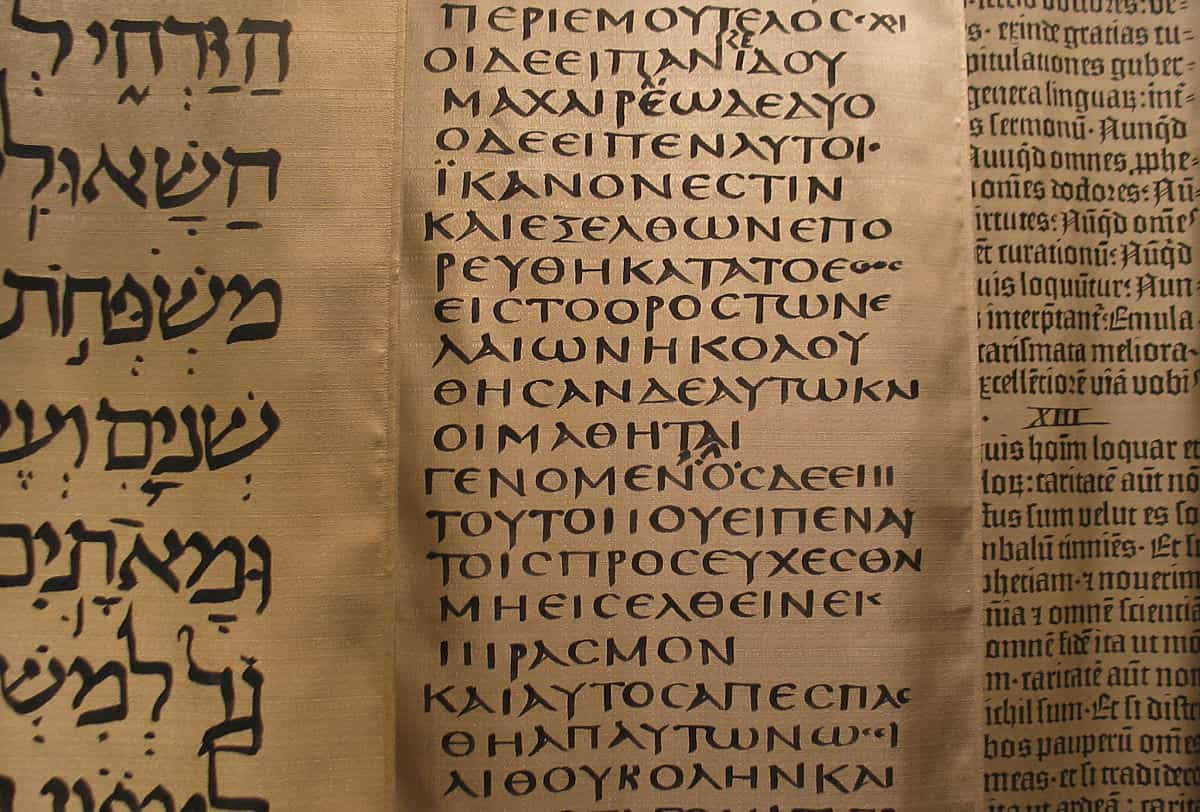 הַזַּרְחִ֕י לְ
הַשָּׁאוּלִֽ
מִשְׁפְּחֹ֣ת
שְׁנַ֧יִם וְעֶ
וּמָאתָֽיִם
גָד֮ לְמִשְׁ
ΠΕΡΙΕΜΟΥΤΕΛΟΣ·ΧΡΙ
ΟΙΔΕΕΙΠΑΝΪΔΟΥ
ΜΑΧΑΙΡΕΩΔΕΔΥΟ
ΟΔΕΕΙΠΕΝΑΥΤΟΙ·
ΪΚΑΝΟΝΕCΤΙΝ
ΚΑΙΕΞΕΛΘΩΝΕΠΟ
ΡΕΥΘΗΚΑΤΑΤΟΕΘΟC
ΕΙCΤΟΟΡΟCΤΩΝΕ
ΛΑΙΩΝΗΚΟΛΟΥ
ΘΗCΑΝΔΕΑΥΤΩΚΑΙ
ΟΙΜΑΘΗΤΑΙ
ΓΕΝΟΜΕΝΟCΔΕΕΠΙ
ΤΟΥΤΟΠΟΥΕΙΠΕΝΑΥ
ΤΟΙCΠΡΟCΕΥΧΕCΘΑΙ
ΜΗΕΙCΕΛΘΕΙΝΕΙC
ΠΙΡΑCΜΟΝ
ΚΑΙΑΥΤΟCΑΠΕCΠΑC
ΘΗΑΠΑΥΤΩΝΩCΕΙ
ΛΙΘΟΥΚΟΛΗΝΚΑΙ
s· exinde gratias cu-
pitulationes guber-
genera linguaꝝ: int-
s sermonū· Nunqͥd
Nunqͥd omnes ꝓphe-
omēs doctores: Nū
irtutes: Nūqͥd omē
ēt curationū: Nūqͥd
uis loquūtur: Nun
interp̄tant: Emula
carismata meliora·
xcellētiorē uiā uobis
XIII
uis hoīm loquar et
loꝝ: caritatē aūt nō
tus sum velut es so
nbalū tinniēs· Et si
phetiam· ⁊ nouerim
n̄ia ⁊ omnē scienti
omnē fidē ita ut mō
m· caritatē aūt non
ichil sum· Et si dist
bos pauperū omēs
meas· et si tradide